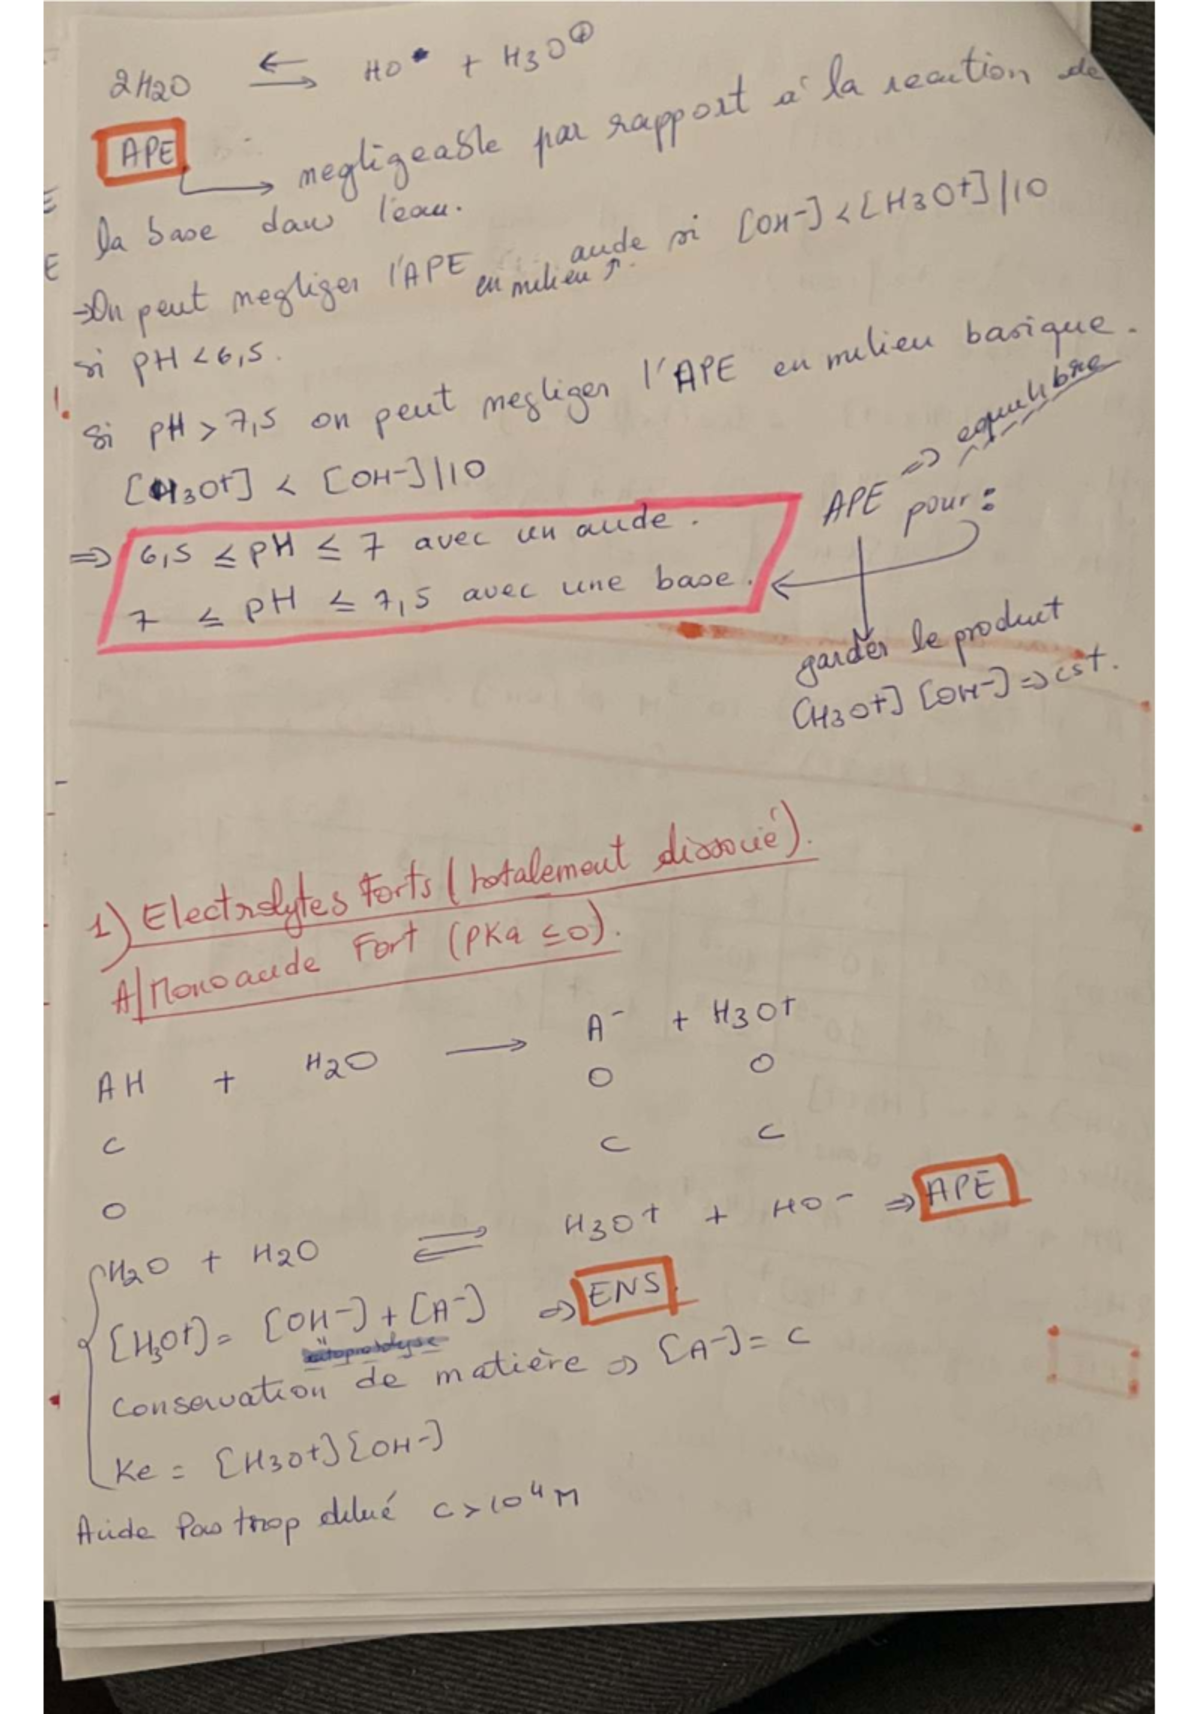 2H2O ⇌ HO• + H3O⊕
APE
→ negligeable par rapport à la reaction de
la base dans l'eau.
→On peut negliger l'APE en milieu acide si [OH-] < [H3O+]/10
si pH < 6,5.
Si pH > 7,5 on peut negliger l'APE en milieu basique.
[H3O+] < [OH-]/10
APE => equilibre
pour :
=> 6,5 ≤ pH ≤ 7 avec un acide.
7 ≤ pH ≤ 7,5 avec une base.
garder le produit
[H3O+] [OH-] => cst.
1) Electrolytes Forts (totalement dissocié).
A/ Monoacide Fort (pKa ≤ 0).
AH + H2O → A- + H3O+
O O
C C C
O
H2O + H2O ⇌ H3O+ + HO- => APE
[H3O+] = [OH-] + [A-] => ENS.
Conservation de matière => [A-] = C
Ke = [H3O+][OH-]
Acide Pas trop dilué C > 10⁴ M